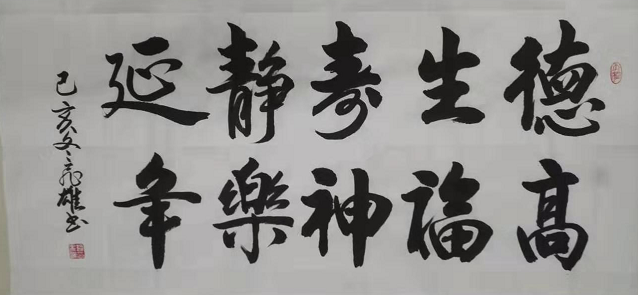 德高
生福
寿神
静樂
延年
己亥冬飛雄书